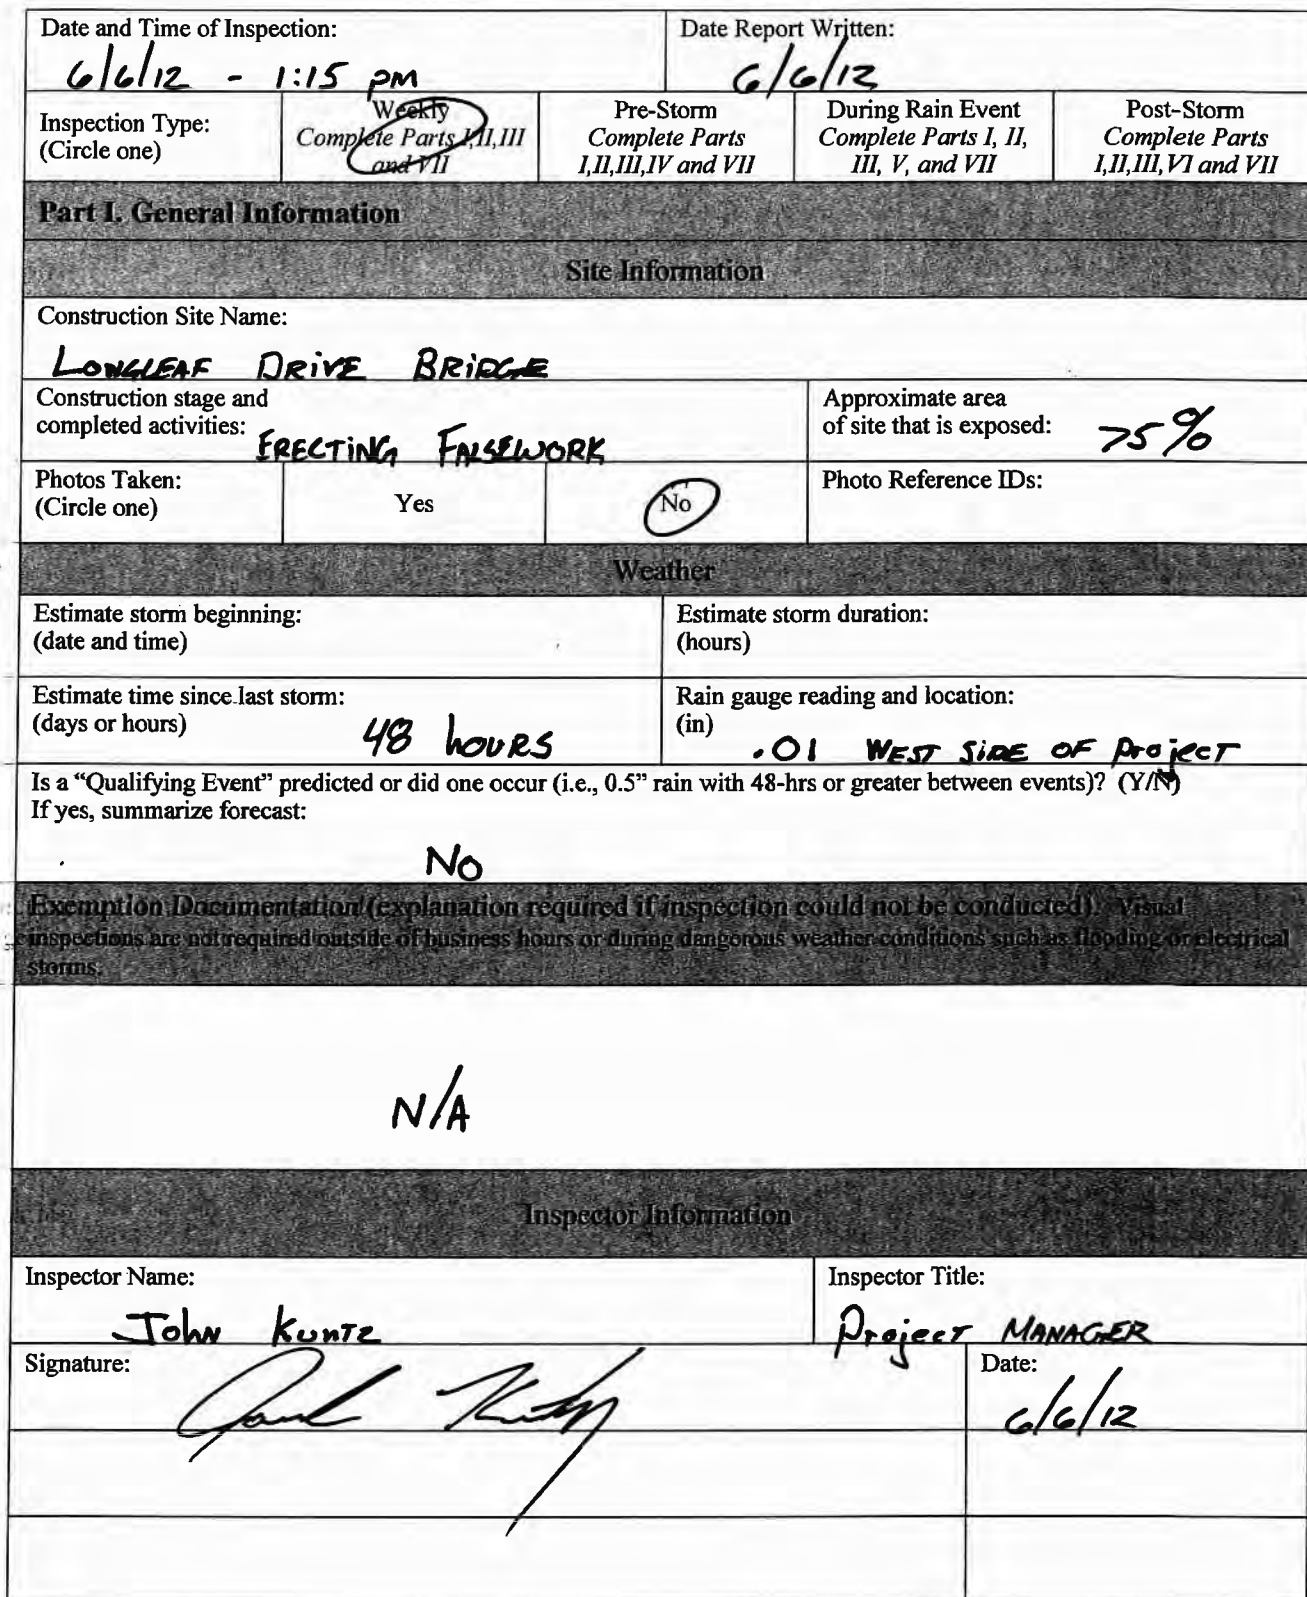 Date and Time of Inspection:
6/6/12 - 1:15 pm
Date Report Written:
6/6/12
Inspection Type:
(Circle one)
Weekly
Complete Parts I,II,III
and VII
Pre-Storm
Complete Parts
I,II,III,IV and VII
During Rain Event
Complete Parts I, II,
III, V, and VII
Post-Storm
Complete Parts
I,II,III,VI and VII
Part I. General Information
Site Information
Construction Site Name:
LONGLEAF DRIVE BRIDGE
Construction stage and
completed activities: ERECTING FALSEWORK
Approximate area
of site that is exposed: 75%
Photos Taken:
(Circle one)
Yes
No
Photo Reference IDs:
Weather
Estimate storm beginning:
(date and time)
Estimate storm duration:
(hours)
Estimate time since last storm:
(days or hours) 48 hours
Rain gauge reading and location:
(in) .01 WEST SIDE OF Project
Is a “Qualifying Event” predicted or did one occur (i.e., 0.5” rain with 48-hrs or greater between events)? (Y/N)
If yes, summarize forecast:
No
Exemption Documentation (explanation required if inspection could not be conducted). Visual
inspections are not required outside of business hours or during dangerous weather conditions such as flooding or electrical
storms.
N/A
Inspector Information
Inspector Name:
John Kuntz
Inspector Title:
Project MANAGER
Signature:
Date:
6/6/12